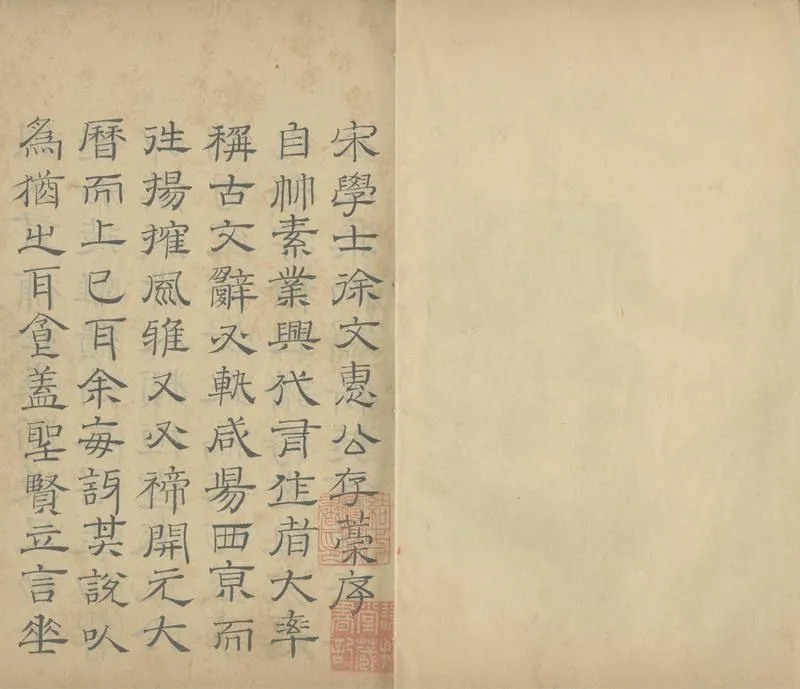 宋學士徐文惠公存藁序
自竹素業興代有作者大率
稱古文辭必軼咸陽西京而
往揚搉風雅又必禘開元大
曆而上已耳余每訝其說以
為猶之耳食蓋聖賢立言垂